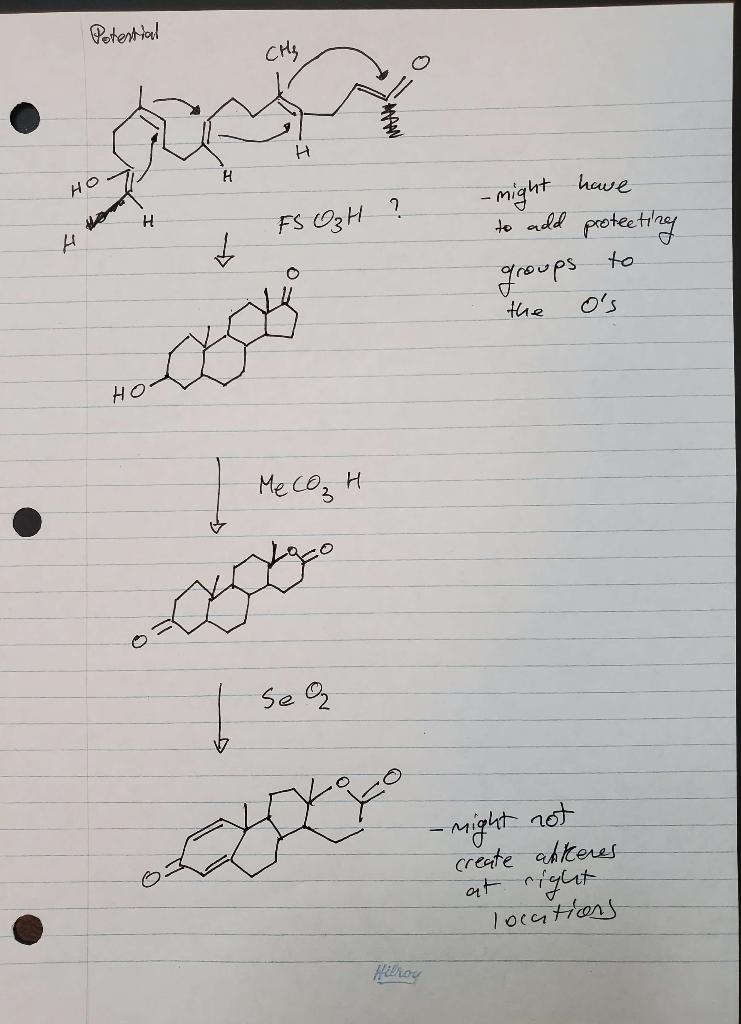 Potential
CH3
O
HO
H
H
H
H
FSO3H ?
- might have
to add protecting
groups to
the O's
O
HO
MeCO3H
O
O
O
SeO2
O
O
O
- might not
create alkenes
at right
locations
Hilroy